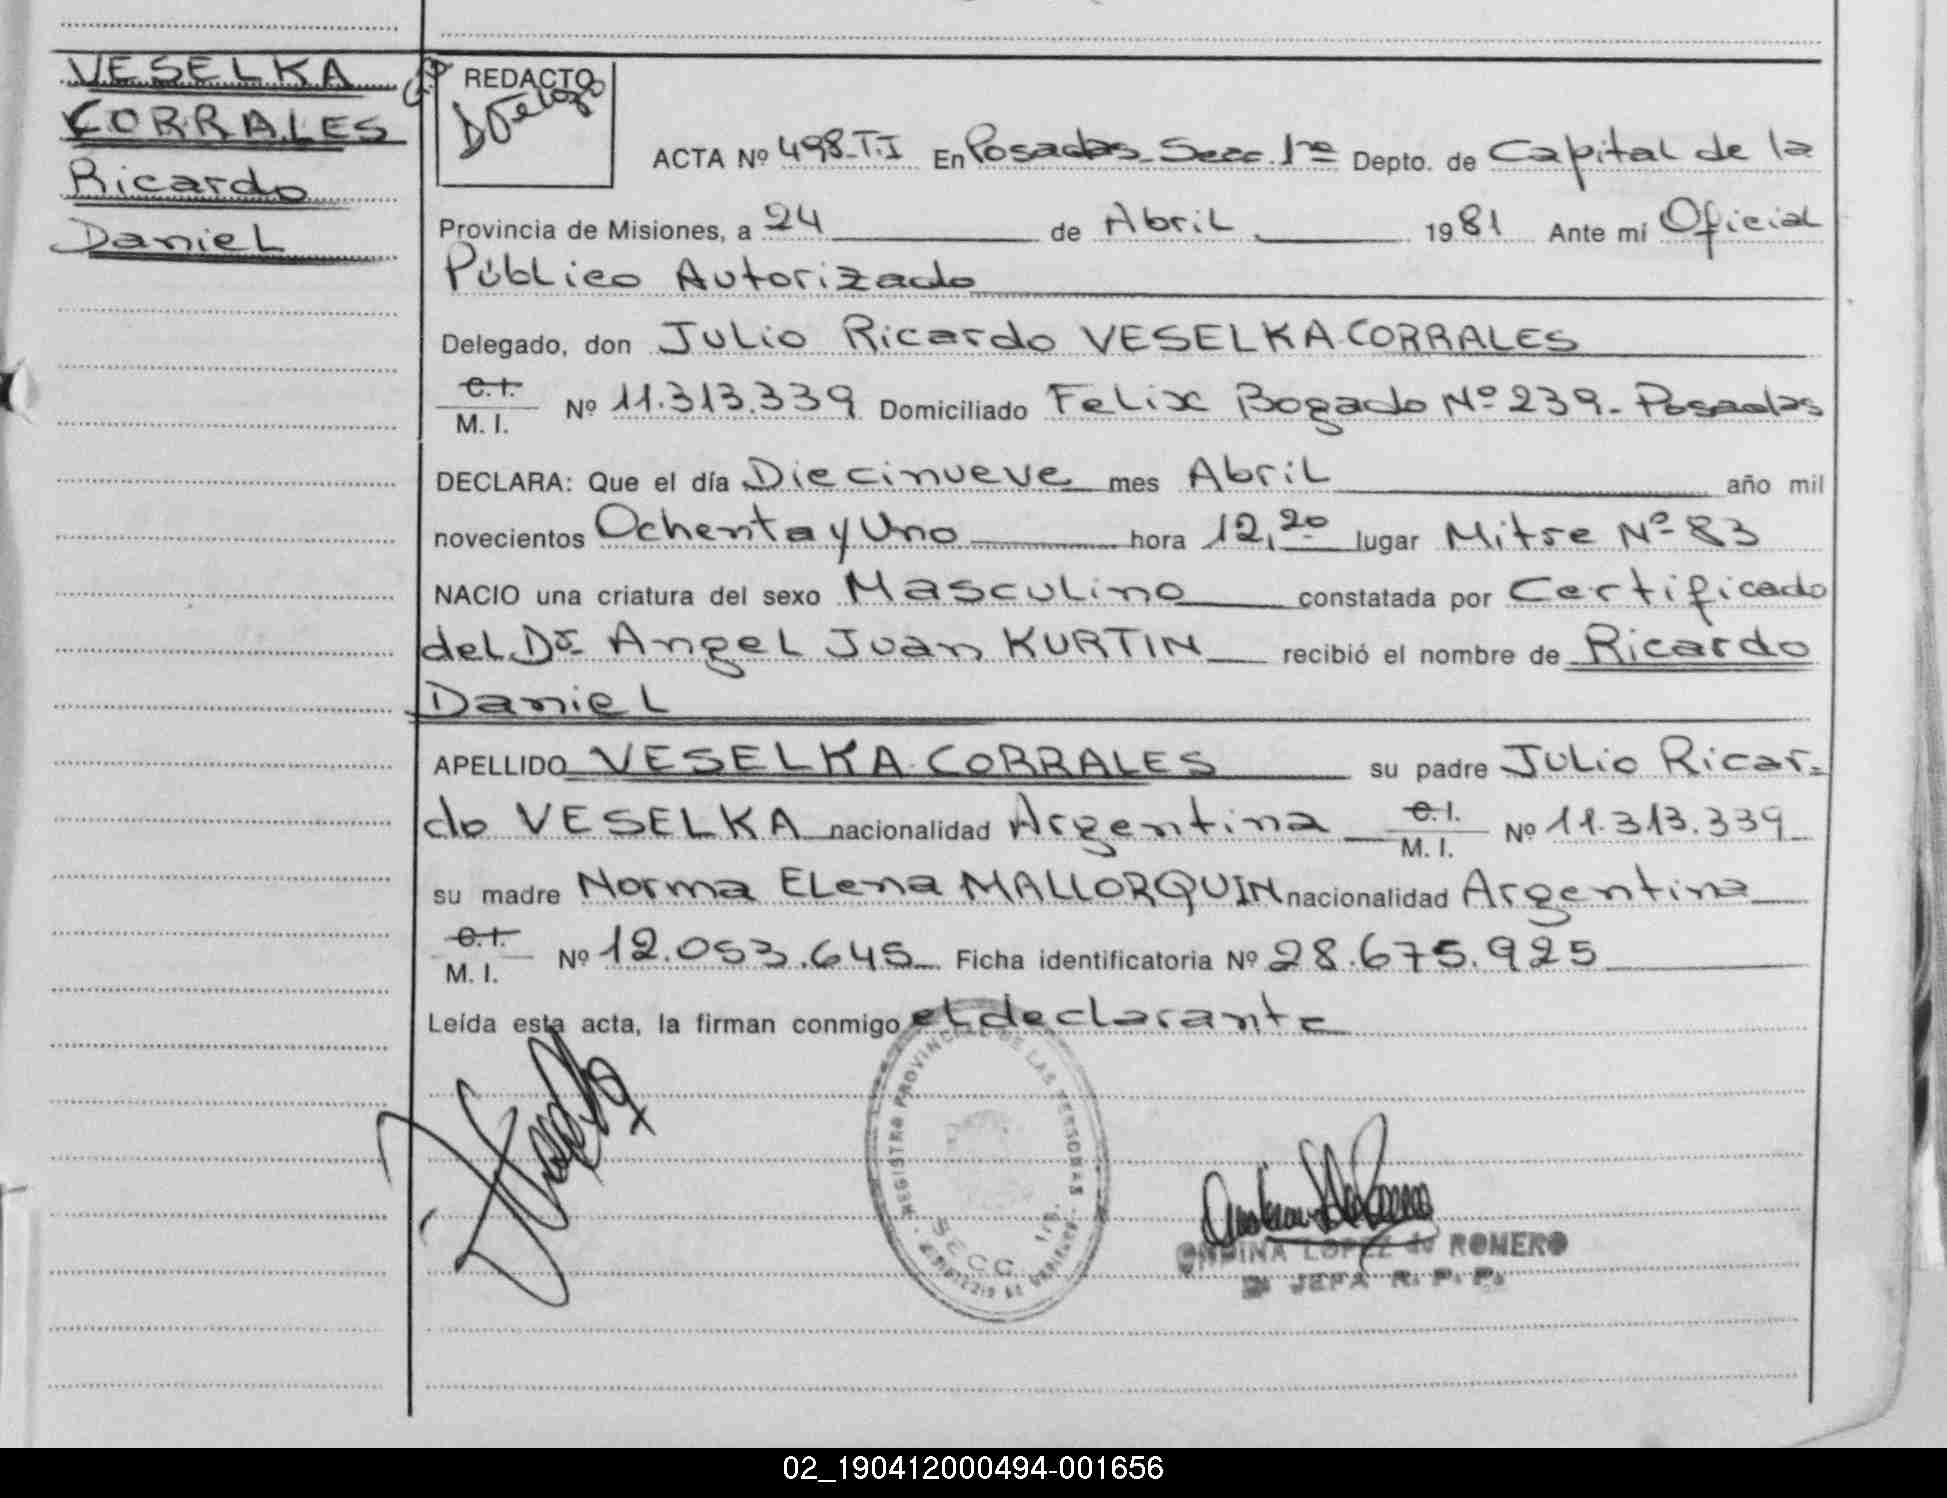 VESELKA
CORRALES
Ricardo
Daniel
REDACTO
ACTA Nº 498-T.I En Posadas-Secc.1ra Depto. de Capital de la
Provincia de Misiones, a 24 de Abril 1981 Ante mí Oficial
Público Autorizado
Delegado, don Julio Ricardo VESELKA-CORRALES
C.I. M.I. Nº 11.313.339 Domiciliado Felix Bogado Nº 239-Posadas
DECLARA: Que el día Diecinueve mes Abril año mil
novecientos Ochenta y Uno hora 12,20 lugar Mitre Nº 83
NACIO una criatura del sexo Masculino constatada por Certificado
del Dr. Angel Juan KURTIN recibió el nombre de Ricardo
Daniel
APELLIDO VESELKA-CORRALES su padre Julio Ricar-
do VESELKA nacionalidad Argentina C.I. M.I. Nº 11.313.339
su madre Norma Elena MALLORQUIN nacionalidad Argentina
C.I. M.I. Nº 12.053.645 Ficha identificatoria Nº 28.675.925
Leída esta acta, la firman conmigo el declarante
REGISTRO PROVINCIAL DE LAS PERSONAS
SECC.
ONDINA LOPEZ de ROMERO
JEFA R. P. P.
02_190412000494-001656